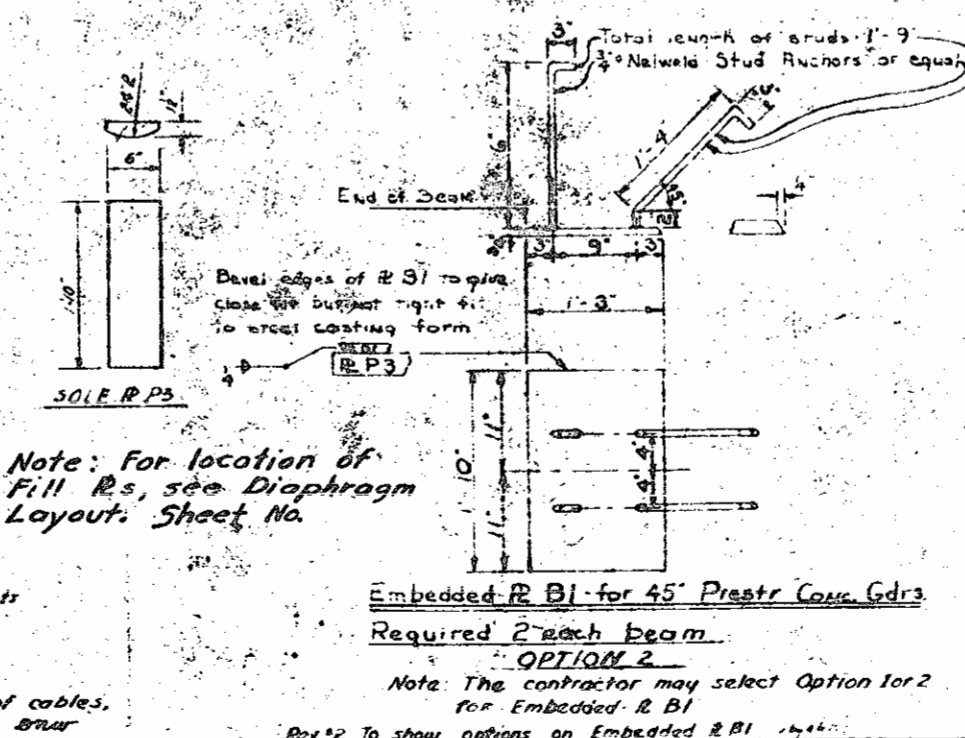 3"
Total length of studs 1'-9"
3/4" Nelweld Stud Anchors or equal
6"
1'-4
45°
2"
End of Beam
3"
9"
3"
1'-3"
Bevel edges of ℞ B1 to give
close fit but not tight fit
to steel casting form
1/4
℞ P3
10"
SOLE ℞ P3
Note: For location of
Fill ℞s, see Diaphragm
Layout. Sheet No.
1'-10"
11"
11"
4"
4"
Embedded ℞ B1 for 45" Prestr Conc. Gdrs
Required 2 each beam
OPTION 2
Note: The contractor may select Option 1 or 2
for Embedded ℞ B1
of cables,
Rev #2 To show options on Embedded ℞ B1